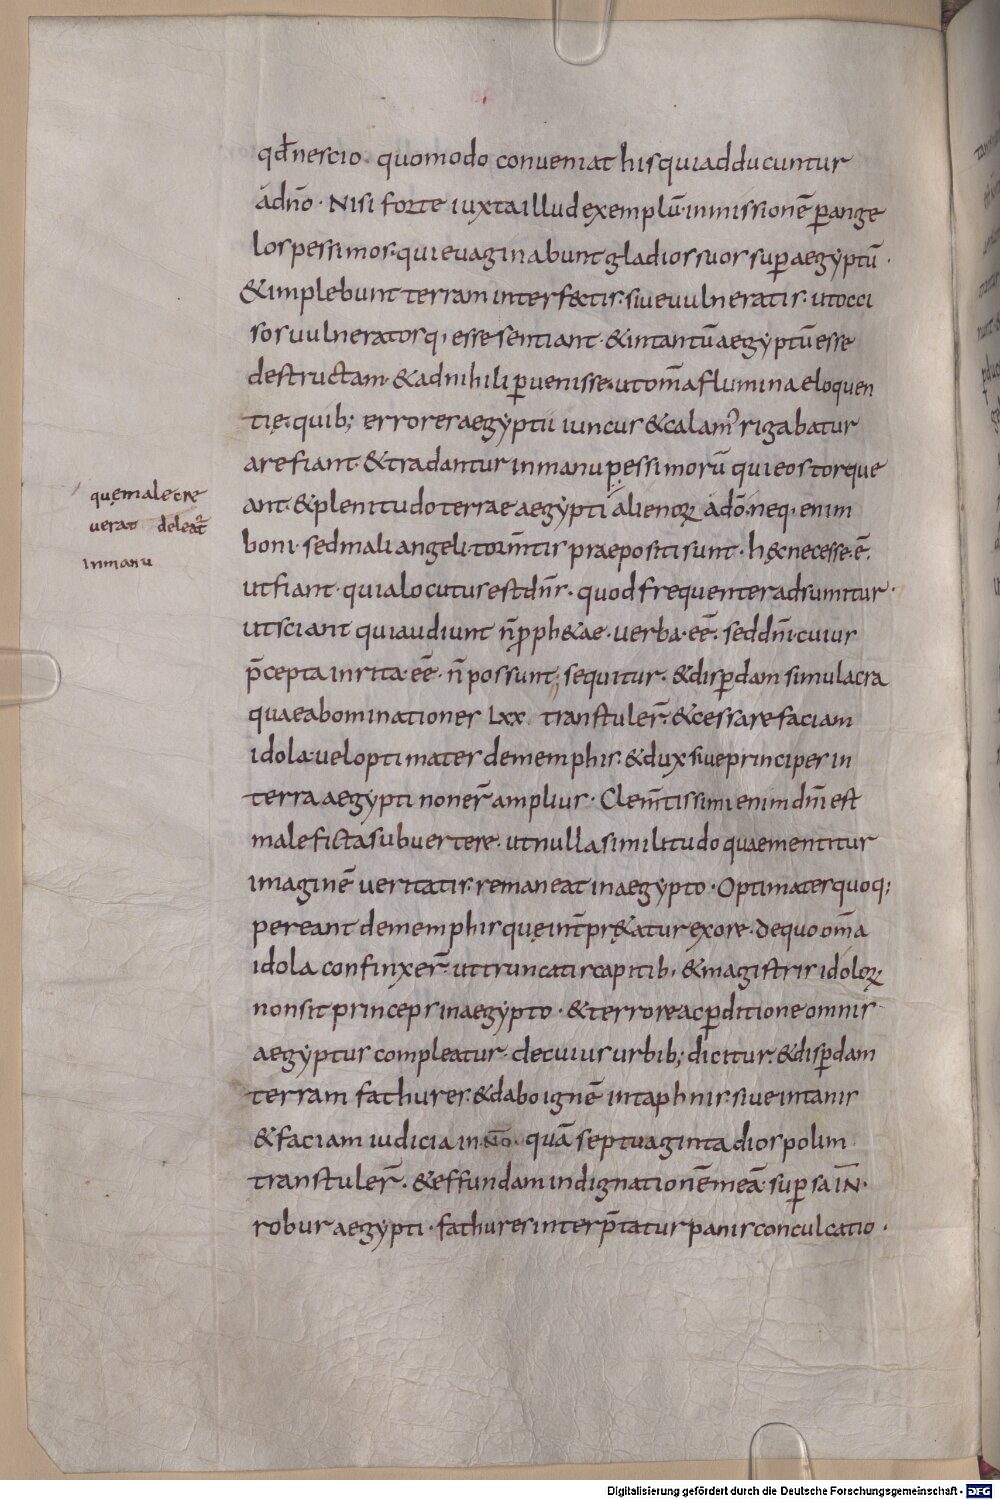 qđnescio. quomodo conueniat hisquiadducuntur
ádnō· Nisi forte iuxtaillud exemplū·inmissionē p̱ange
lospessimos·quieuaginabunt gladiossuos sup̱aegẏptū·
&implebunt terram interfectis·siueuulneratis·utocci
sosuulneratosq; essesentiant·&intantūaegẏptūesse
destructam·&adnihili p̱uenisse·utom̄aflumina eloquen
tię·quib; erroresaegẏptii iuncus&calam᾿rigabatur
arefiant·&tradantur inmanu pessimorū quieostorque
ant·&plenitudo terrae aegẏpti alienoꝝ ádō·neq; enim
boni·sedmali angeli·torm̄tis praepositisunt·hęcnecesse·ē·
utfiant·quialocutusestdn̄s·quodfrequenteradsumitur·
utsciant quiaudiunt n̄ꝓph&ae·uerba·eē·seddn̄i·cuius
p̄cepta inrita·eē·n̄possunt; sequitur·&disp̱dam simulacra
quaeabominationes Lxx transtuler̄·&cessarefaciam
idola·ueloptimates dememphis·&dux siueprincipes in
terraaegẏpti noner̄amplius· Clem̄tissimienimdn̄iest
malefictasubuertere·utnullasimilitudo quaementitur
imaginē ueritatis·remaneat inaegẏpto·Optimatesquoq;
pereant dememphis quęint̄pr&atur exore·dequo om̄a
idola confinxer̄·uttruncatiscapitib; &magistris idoloꝝ
nonsit princeps inaegẏpto·&terroreacp̱ditione omnis
aegẏptus compleatur·decuius urbib; dicitur·&disp̱dam
terram fathures·&dabo ignē intaphnis·siueintanis
&faciam iudicia in·nō· quā septuaginta diospolim
transtuler̄·&effundam indignationēmeā·sup̱ saīN·
robur aegẏpti·fathures interp̄tatur panisconculcatio·
quęmalecre
uerat deleat᷑
inmanu
Digitalisierung gefördert durch die Deutsche Forschungsgemeinschaft - DFG